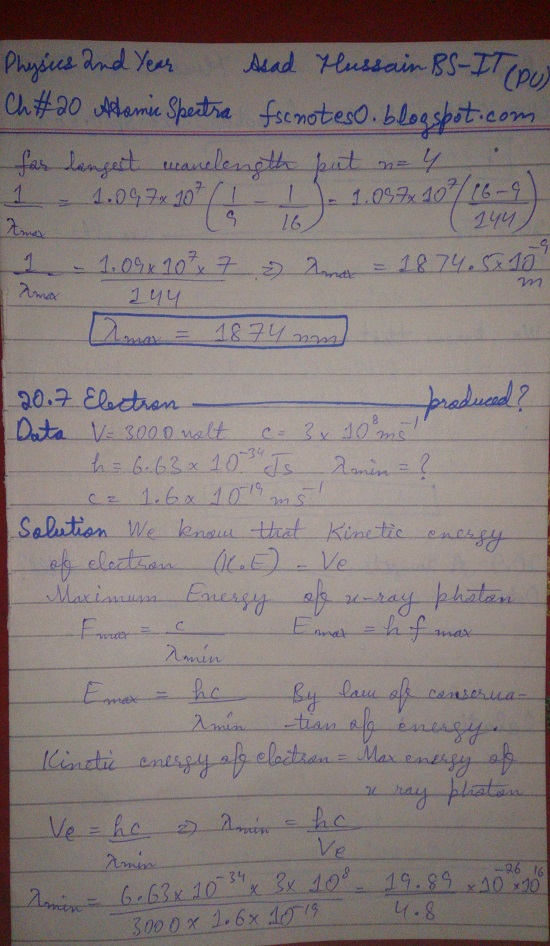 Physics 2nd Year Asad Hussain BS-IT (PU)
Ch#20 Atomic Spectra fscnotes0.blogspot.com
for longest wavelength put n= 4
1/λmax = 1.097x10⁷ (1/9 - 1/16) = 1.097x10⁷ (16-9/144)
1/λmax = 1.09x10⁷x7/144 => λmax = 1874.5x10⁻⁹ m
λmax = 1874 nm
20.7 Electron ———————— produced?
Data V= 3000 volt c= 3x 10⁸ ms⁻¹
h= 6.63x 10⁻³⁴ Js λmin = ?
c= 1.6x 10⁻¹⁹ ms⁻¹
Solution We know that Kinetic energy
of electron (K.E) = Ve
Maximum Energy of x-ray photon
Fmax = c/λmin Emax = h f max
Emax = hc/λmin By law of conserva-
-tion of energy.
Kinetic energy of electron = Max energy of
x ray photon
Ve = hc/λmin => λmin = hc/Ve
λmin = 6.63x10⁻³⁴x 3x 10⁸/3000x 1.6x 10⁻¹⁹ = 19.89/4.8 x10⁻²⁶x10¹⁶